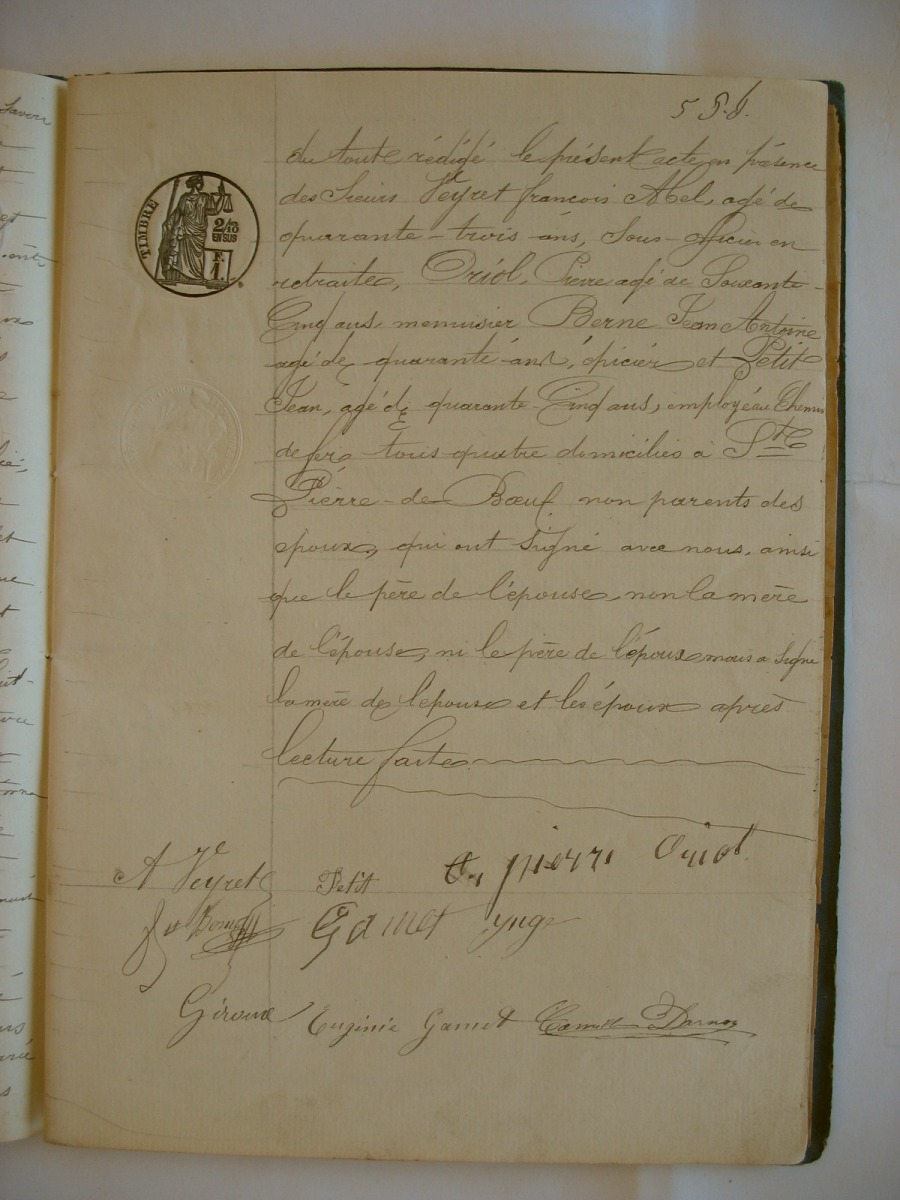 5
du tout rédigé le présent acte en présence
des Sieurs Veyret françois Abel, agé de
quarante-trois ans, Sous-officier en
retraite, Oriol, Pierre agé de Soixante-
Cinq ans, menuisier Berne Jean Antoine
agé de quarante ans, épicier et Petit
Jean, agé de quarante-Cinq ans, employé au Chemin
de fer tous quatre domiciliés à St
Pierre-de-Bœuf non parents des
époux, qui ont Signé avec nous, ainsi
que le père de l'épouse, non la mère
de l'épouse, ni le père de l'époux mais a Signé
la mère de l'epouse et les époux après
lecture faite.
TIMBRE
2/10
EN SUS
F.
1.
A Veyret Petit pierre Oriol
Gamet
Giroux Euginie Gamet
Savoir